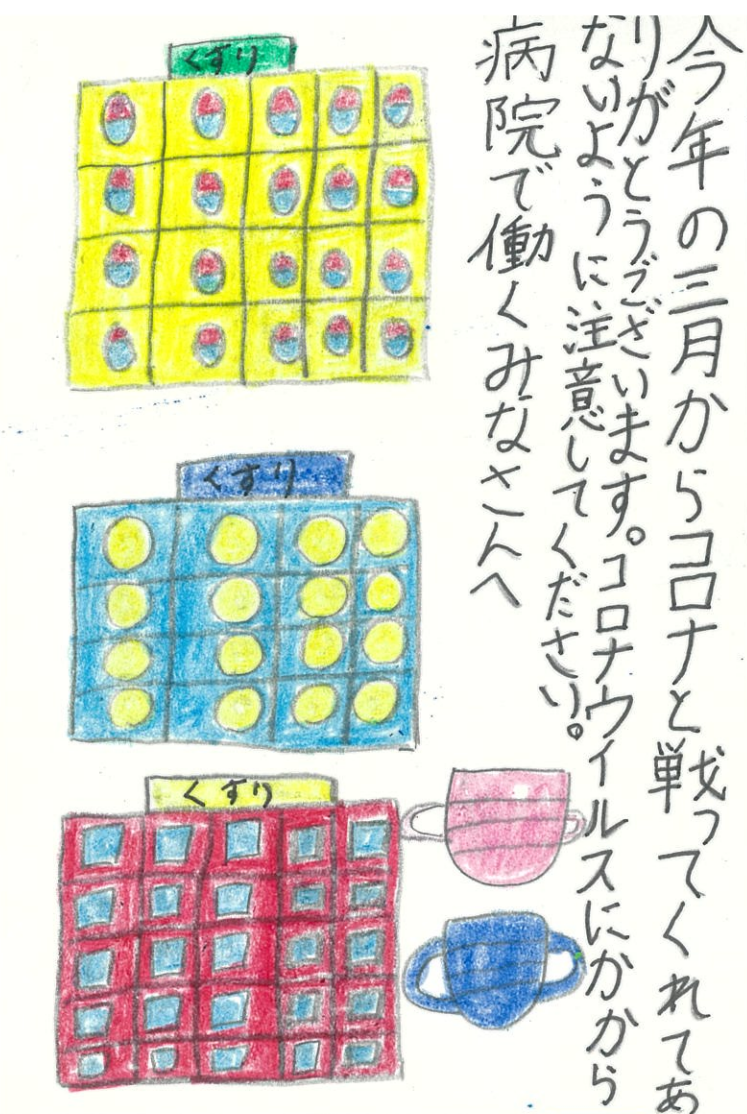 今年の三月からコロナと戦ってくれてあ
りがとうございます。コロナウイルスにかから
ないように注意してください。
病院で働くみなさんへ
くすり
くすり
くすり